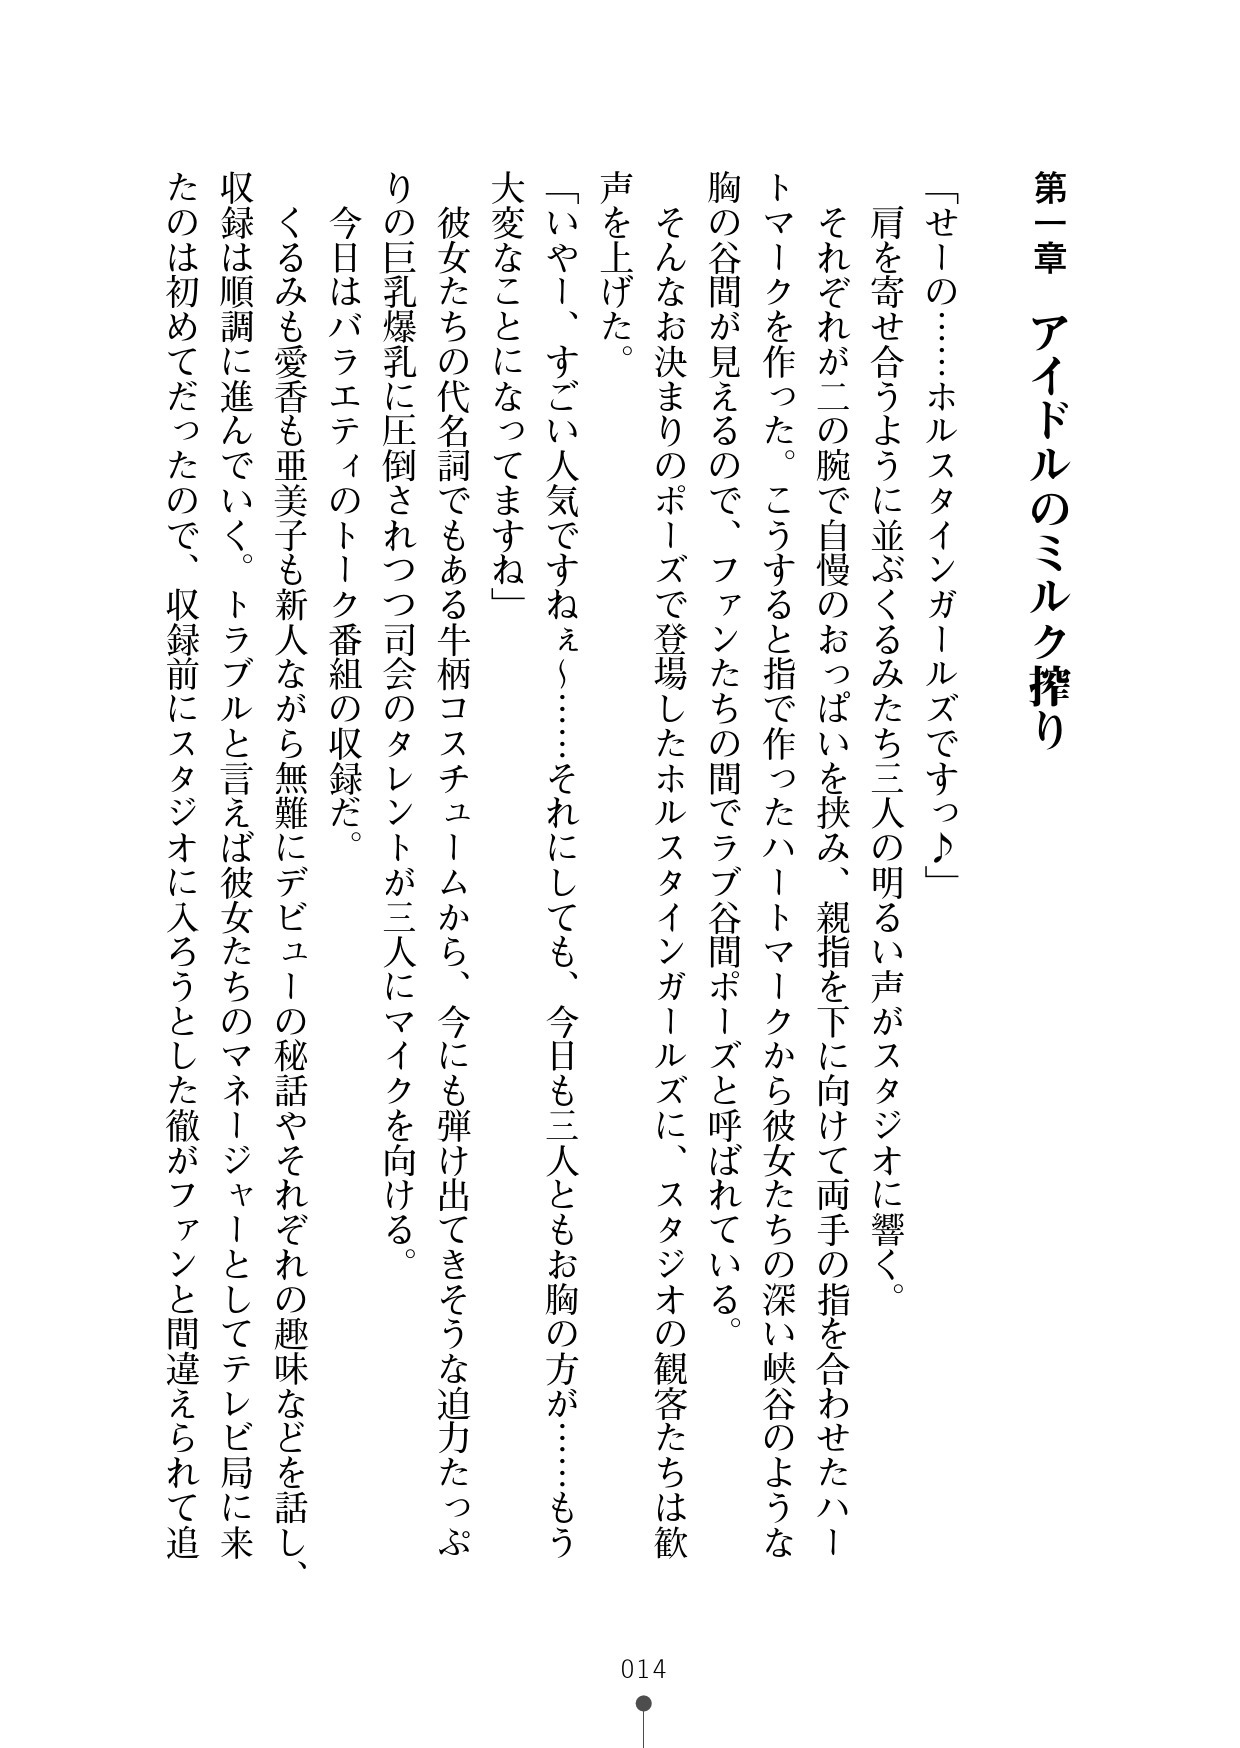 第一章　アイドルのミルク搾り
「せーの……ホルスタインガールズですっ♪」
　肩を寄せ合うように並ぶくるみたち三人の明るい声がスタジオに響く。
　それぞれが二の腕で自慢のおっぱいを挟み、親指を下に向けて両手の指を合わせたハー
トマークを作った。こうすると指で作ったハートマークから彼女たちの深い峡谷のような
胸の谷間が見えるので、ファンたちの間でラブ谷間ポーズと呼ばれている。
　そんなお決まりのポーズで登場したホルスタインガールズに、スタジオの観客たちは歓
声を上げた。
「いやー、すごい人気ですねぇ～……それにしても、今日も三人ともお胸の方が……もう
大変なことになってますね」
　彼女たちの代名詞でもある牛柄コスチュームから、今にも弾け出てきそうな迫力たっぷ
りの巨乳爆乳に圧倒されつつ司会のタレントが三人にマイクを向ける。
　今日はバラエティのトーク番組の収録だ。
　くるみも愛香も亜美子も新人ながら無難にデビューの秘話やそれぞれの趣味などを話し、
収録は順調に進んでいく。トラブルと言えば彼女たちのマネージャーとしてテレビ局に来
たのは初めてだったので、収録前にスタジオに入ろうとした徹がファンと間違えられて追
014